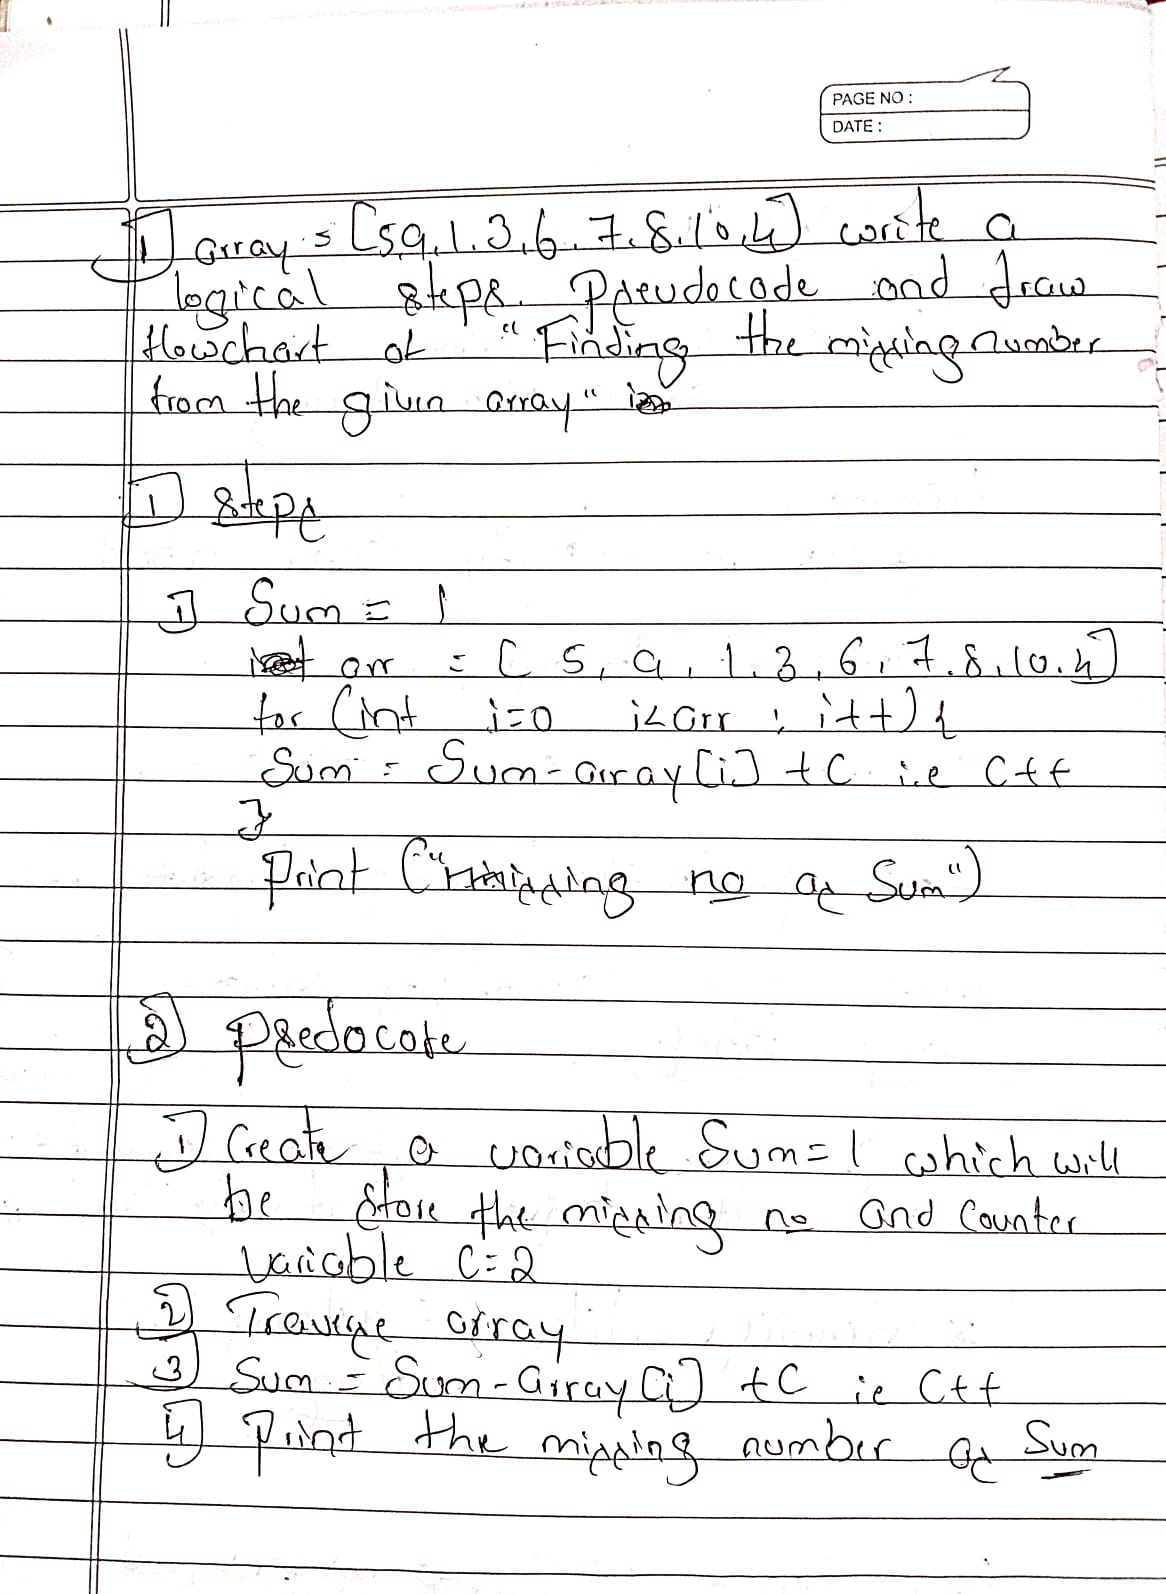 PAGE NO :
DATE :
1) array = [5,9,1,3,6,7,8,10,4] write a
logical steps. Pseudocode and draw
flowchart of "Finding the missing number
from the given array"
1) Steps
1) Sum = 1
arr = [ 5, 9, 1, 3, 6, 7, 8, 10, 4]
for (int i=0 i<arr ; i++) {
Sum = Sum - array [i] + C i.e C++
}
Print ("missing no as Sum")
2) Psedocote
1) Create a variable Sum = 1 which will
be store the missing no and Counter
variable C=2
2) Traverse array
3) Sum = Sum - array [i] + C ie C++
4) Print the missing number as Sum